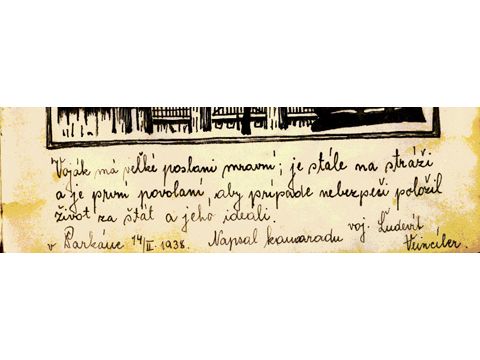 Voják má veľké poslani mravní; je stále na stráži
a je první povolaní, aby prípade nebezpeči položil
život za štát a jeho ideali.
v Parkáne 14/II. 1938. Napsal kamaradu voj. Ľudevít